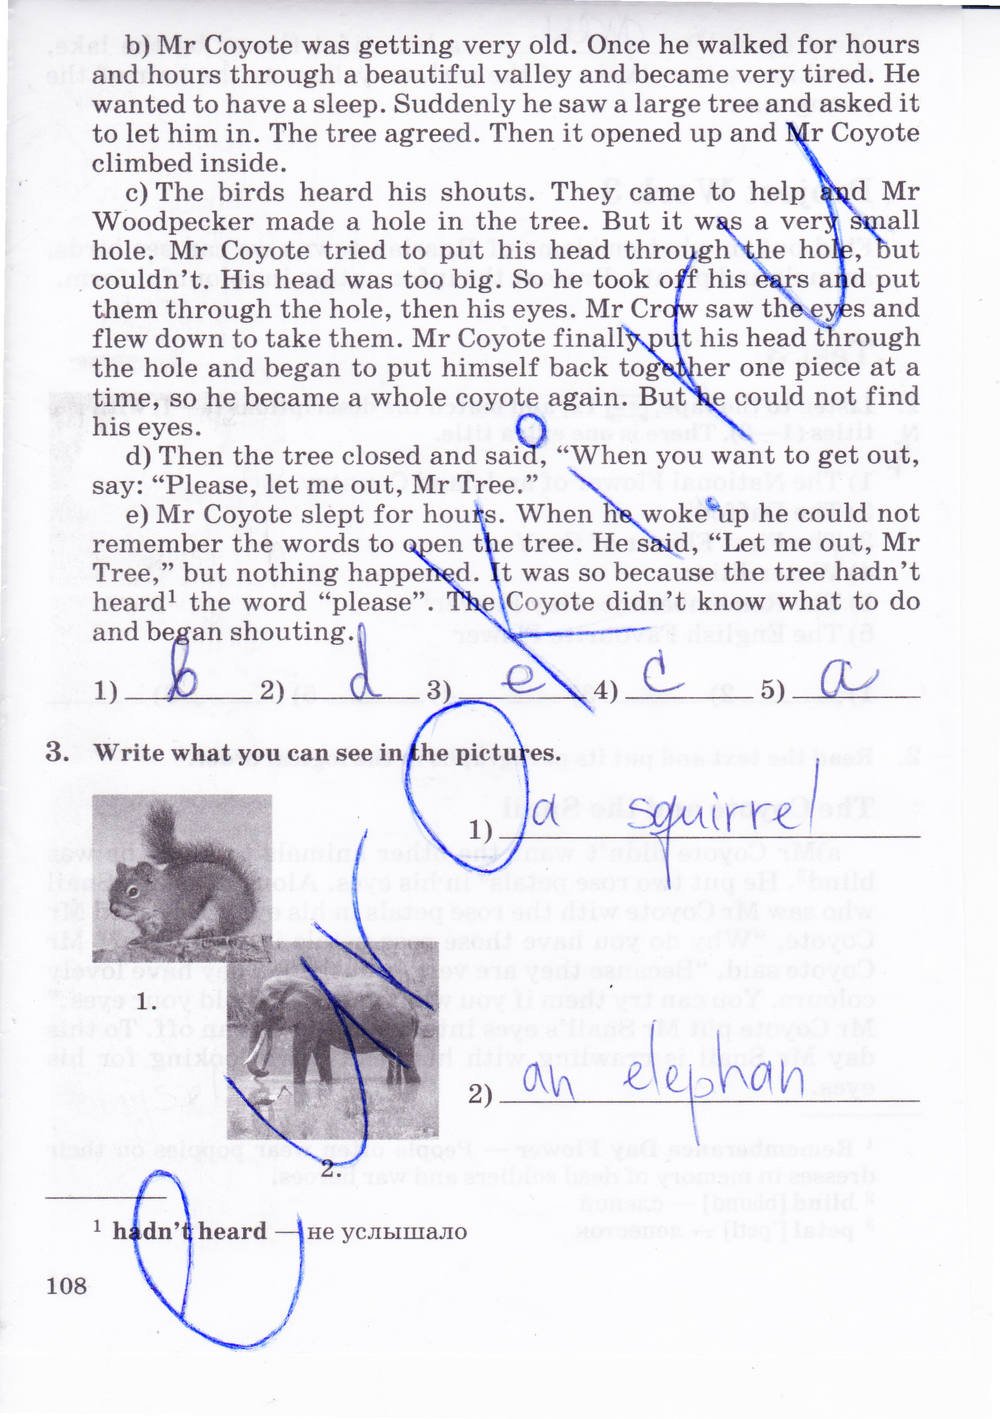 b) Mr Coyote was getting very old. Once he walked for hours
and hours through a beautiful valley and became very tired. He
wanted to have a sleep. Suddenly he saw a large tree and asked it
to let him in. The tree agreed. Then it opened up and Mr Coyote
climbed inside.
c) The birds heard his shouts. They came to help and Mr
Woodpecker made a hole in the tree. But it was a very small
hole. Mr Coyote tried to put his head through the hole, but
couldn't. His head was too big. So he took off his ears and put
them through the hole, then his eyes. Mr Crow saw the eyes and
flew down to take them. Mr Coyote finally put his head through
the hole and began to put himself back together one piece at a
time, so he became a whole coyote again. But he could not find
his eyes.
d) Then the tree closed and said, “When you want to get out,
say: “Please, let me out, Mr Tree.”
e) Mr Coyote slept for hours. When he woke up he could not
remember the words to open the tree. He said, “Let me out, Mr
Tree,” but nothing happened. It was so because the tree hadn't
heard¹ the word “please”. The Coyote didn't know what to do
and began shouting.
1) b 2) d 3) e 4) c 5) a
3. Write what you can see in the pictures.
1) a squirrel
1.
2) an elephan
2.
¹ hadn't heard — не услышало
108